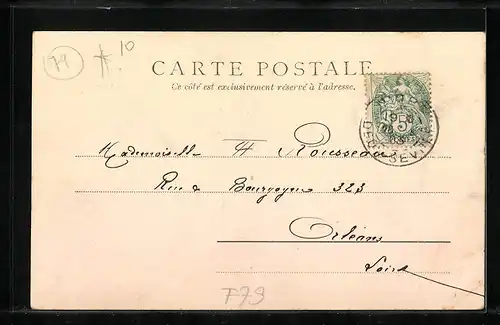 79
10
CARTE POSTALE
Ce côté est exclusivement réservé à l'adresse.
5
SÈVRES
Mademoiselle H Rousseau
Rue Bourgogne 323
Orléans
Loiret
F79